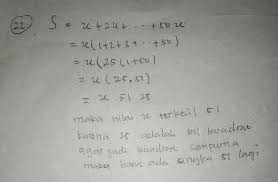 22. S = x + 2x + ... + 50x
= x(1+2+3+...+50)
= x(25(1+50)
= x(25.51)
= x 51 25
maka nilai x terkecil 51
karena 25 adalah bil kuadrat
agar jadi kuadrat sempurna
maka harus ada angka 51 lagi